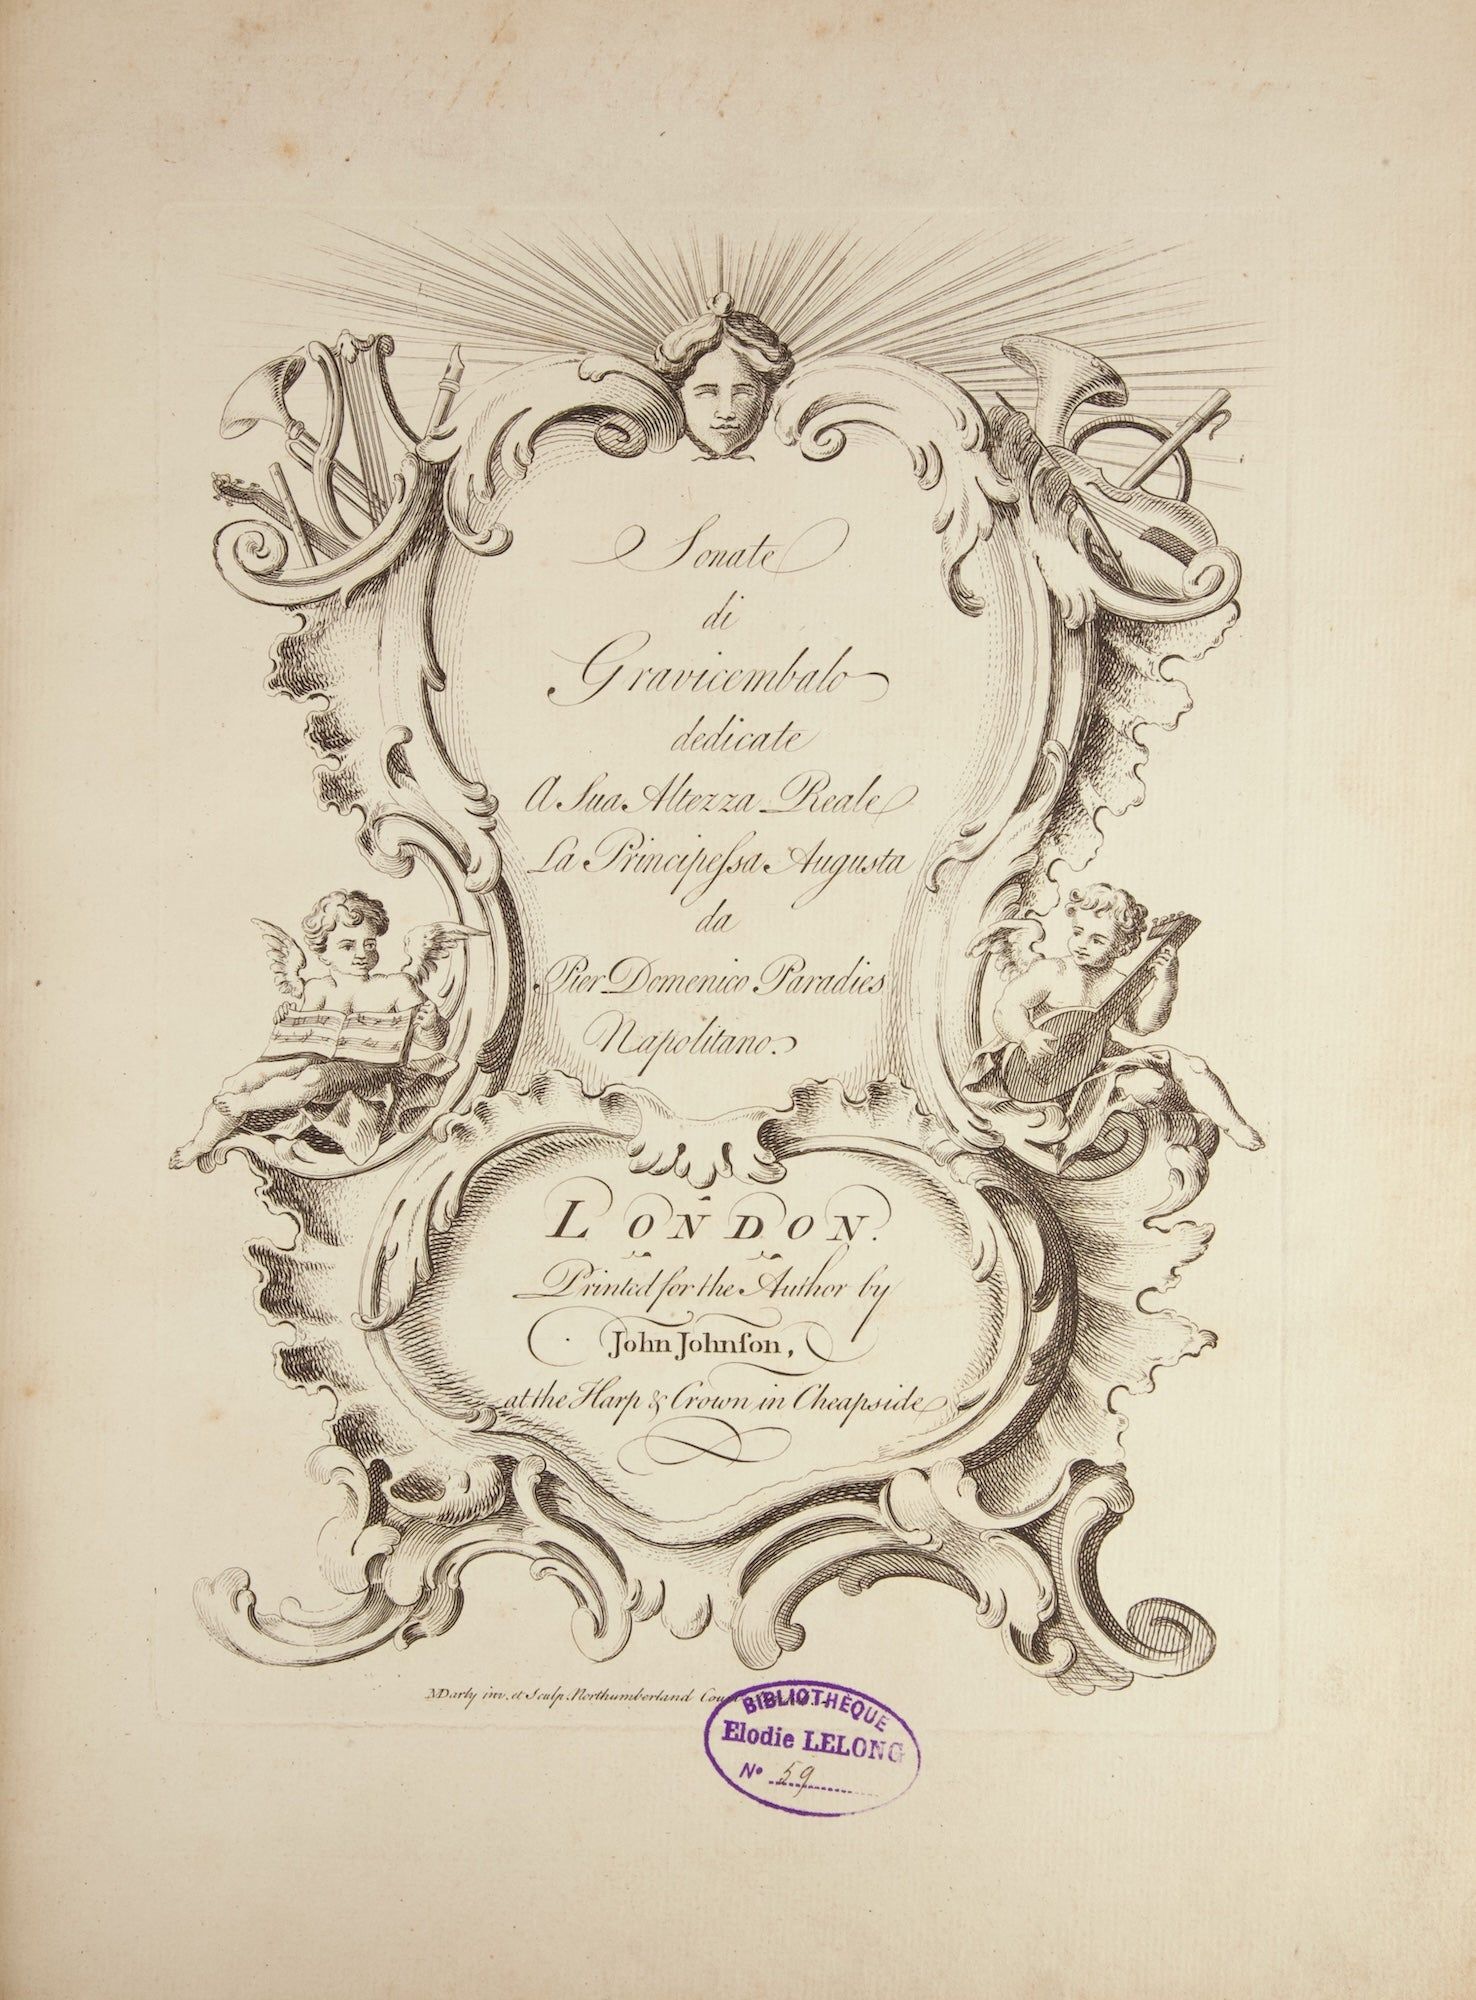 Sonate
di
Gravicembalo
dedicate
A Sua Altezza Reale
La Principeſsa Augusta
da
Pier Domenico Paradies
Napolitano.
LONDON.
Printed for the Author by
John Johnſon,
at the Harp & Crown in Cheapside
MDarly inv. et Sculp. Northumberland
BIBLIOTHÈQUE
Elodie LELONG
No 59